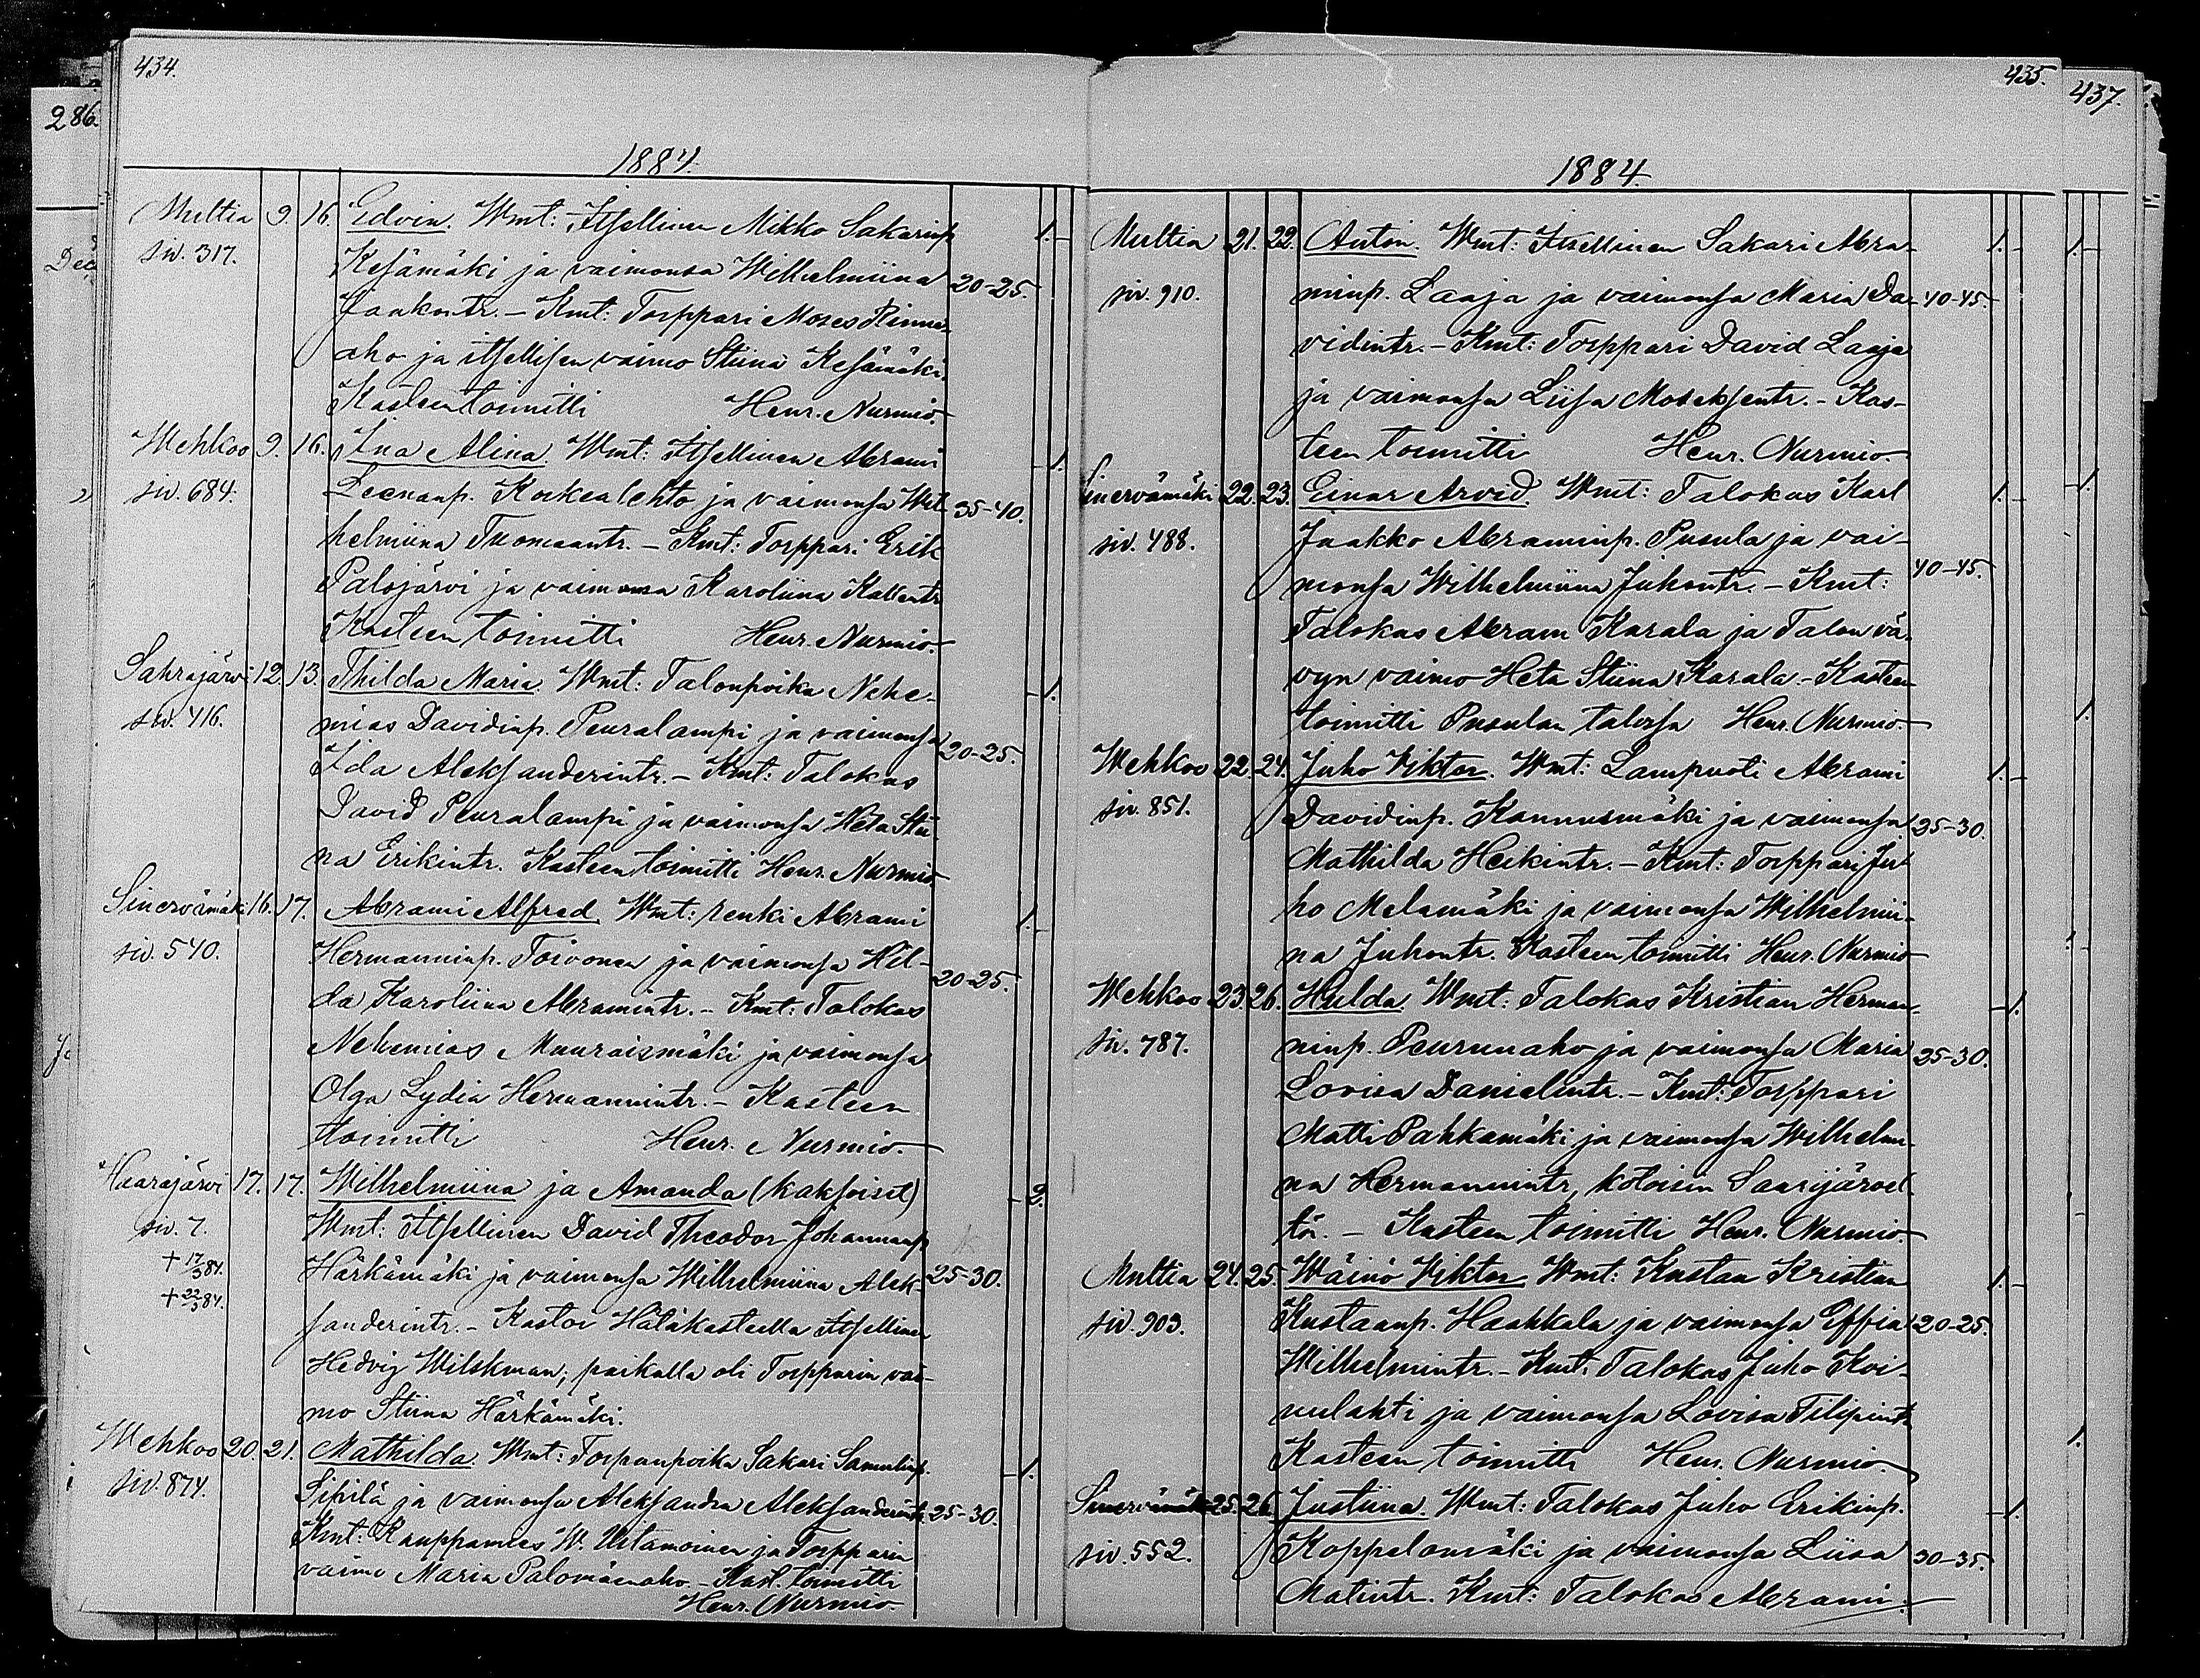 434.
286.
1884.
Multia 9. 16. Edvin. Wmt: Itsellinen Mikko Sakarinp. 1.
siv. 317. Kesämäki ja vaimonsa Wilhelmiina 20-25.
Jaakontr. – Kmt: Torppari Moses Rinne-
aho ja itsellisen vaimo Stiina Kesämäki.
Kasteen toimitti Henr. Nurmio.
Wehkoo 9. 16. Ina Alina. Wmt: Itsellinen Abrami 1.
siv. 684. Leenanp. Korkealehto ja vaimonsa Wil- 35-40.
helmiina Tuomaantr. – Kmt: Torppari Erik
Palojärvi ja vaimonsa Karoliina Kallentr.
Kasteen toimitti Henr. Nurmio.
Sahrajärvi 12. 13. Thilda Maria. Wmt: Talonpoika Nehe- 1.
siv. 416. mias Davidinp. Peuralampi ja vaimonsa 20-25.
Ida Aleksanderintr. – Kmt: Talokas
David Peuralampi ja vaimonsa Heta Stii-
na Erikintr. Kasteen toimitti Henr. Nurmio.
Sinervämäki 16. 17. Abrami Alfred. Wmt: renki Abrami 1.
siv. 540. Hermanninp. Toivonen ja vaimonsa Hil- 20-25.
da Karoliina Abramintr. – Kmt: Talokas
Nehemias Muuraismäki ja vaimonsa
Olga Lydia Hermannintr. – Kasteen
toimitti Henr. Nurmio.
Haarajärvi 17. 17. Wilhelmiina ja Amanda (kaksoiset) 2.
siv. 7. Wmt: Itsellinen David Theodor Johannanp.
+ 17/3 84. Härkämäki ja vaimonsa Wilhelmiina Alek- 25-30.
+ 22/3 84. sanderintr. – Kastoi Hätäkasteella itsellinen
Hedvig Wilskman, paikalla oli Torpparin vai-
mo Stiina Härkämäki.
Wehkoo 20. 21. Mathilda. Wmt: Torpanpoika Sakari Samulinp. 1.
siv. 874. Sipilä ja vaimonsa Aleksandra Aleksanderintr. 25-30.
Kmt: Kauppamies W. Ustamoinen ja Torpparin
vaimo Maria Palomäenaho. – Kast. toimitti
Henr. Nurmio.
435.
437.
1884.
Multia 21. 22. Anton. Wmt: Itsellinen Sakari Abra- 1.
siv. 910. minp. Laaja ja vaimonsa Maria Da- 40-45.
vidintr. – Kmt: Torppari David Laaja
ja vaimonsa Liisa Moseksentr. – Kas-
teen toimitti Henr. Nurmio.
Sinervämäki 22. 23. Einar Arvid. Wmt: Talokas Karl 1.
siv. 488. Jaakko Abraminp. Pusula ja vai- 40-45.
monsa Wilhelmiina Juhontr. – Kmt:
Talokas Abram Karala ja Talon vä-
vyn vaimo Heta Stiina Karala. – Kasteen
toimitti Pusulan talossa Henr. Nurmio.
Wehkoo 22. 24. Juho Viktor. Wmt: Lampuoti Abrami 1.
siv. 851. Davidinp. Kannusmäki ja vaimonsa 25-30.
Mathilda Heikintr. – Kmt: Torppari Ju-
ho Melamäki ja vaimonsa Wilhelmii-
na Juhontr. Kasteen toimitti Henr. Nurmio
Wehkoo 23. 26. Hulda. Wmt: Talokas Kristian Herman- 1.
siv. 787. ninp. Peurunaho ja vaimonsa Maria 25-30.
Lovisa Danielintr. – Kmt: Torppari
Matti Pahkamäki ja vaimonsa Wilhelmi-
na Hermannintr, kotoisin Saarijärvel-
tä. – Kasteen toimitti Henr. Nurmio.
Multia 24. 25. Wäinö Viktor. Wmt: Kustaa Kristian 1.
siv. 903. Kustaanp. Haahkala ja vaimonsa Effia 20-25.
Wilhelmintr. – Kmt: Talokas Juho Koi-
vulahti ja vaimonsa Lovisa Filipintr.
Kasteen toimitti Henr. Nurmio.
Sinervämäki 25. 26. Justiina. Wmt: Talokas Juho Erikinp. 1.
siv. 552. Koppelomäki ja vaimonsa Liisa 30-35.
Matintr. Kmt: Talokas Abrami